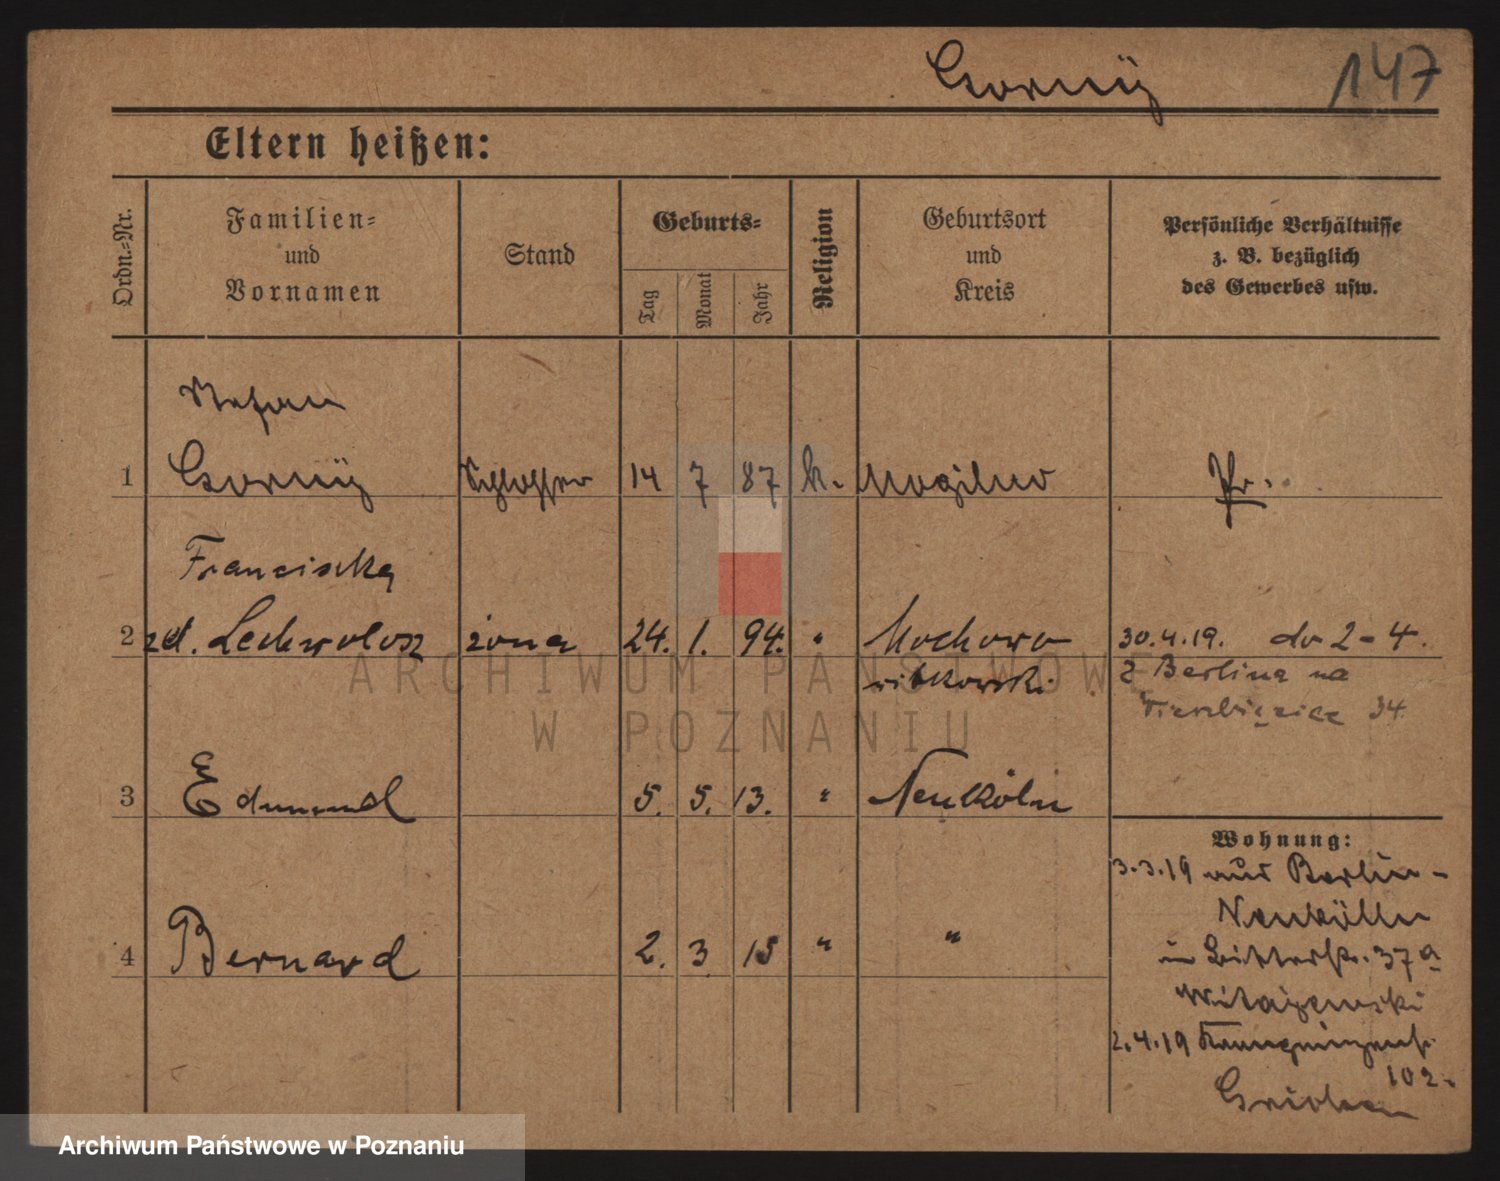 Gorny 147
Eltern heißen:
Ordn.-Nr.
Familien-
und
Vornamen
Stand
Geburts-
Tag
Monat
Jahr
Religion
Geburtsort
und
Kreis
Persönliche Verhältnisse
z. B. bezüglich
des Gewerbes usw.
Stefan
1 Gornÿ Schlosser 14 7 87 k. Mogilno Pr.
Franciszka
2 zd. żona 24. 1. 94. " Mochowo 30.4.19. do 2-4.
witkowski z Berlina na
34
3 Edmund 5. 5. 13. " Neuköln
Wohnung:
3.3.19 aus Berlin-
Neukölln
4 Bernard 2. 3 15 " "
in 37a
2.4.19
102.
ARCHIWUM PAŃSTWOWE
W POZNANIU
Archiwum Państwowe w Poznaniu